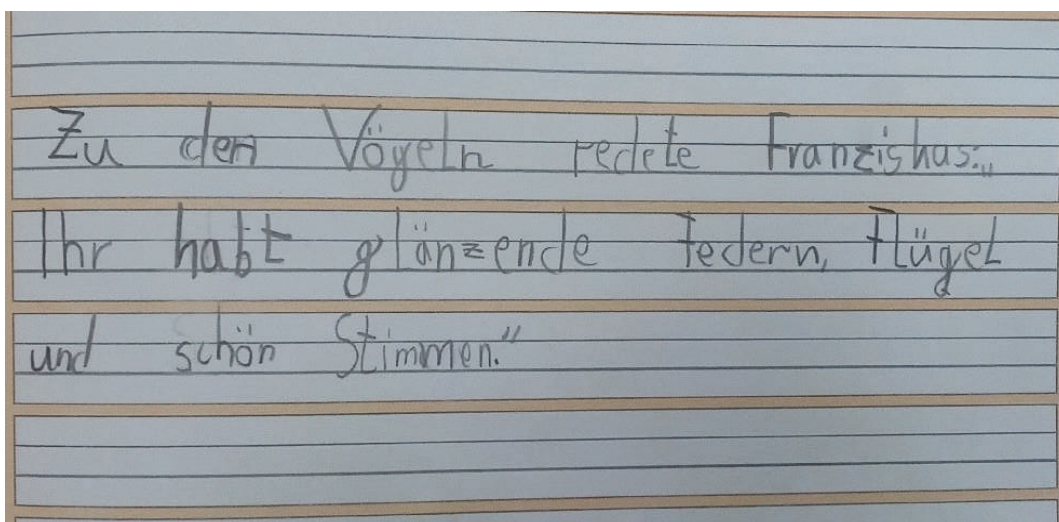 Zu den Vögeln redete Franziskus:„
Ihr habt glänzende Federn, Flügel
und schön Stimmen."